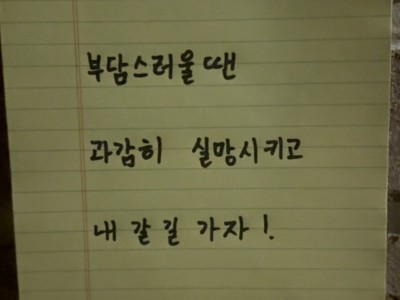 부담스러울 땐
과감히 실망시키고
내 갈 길 가자!